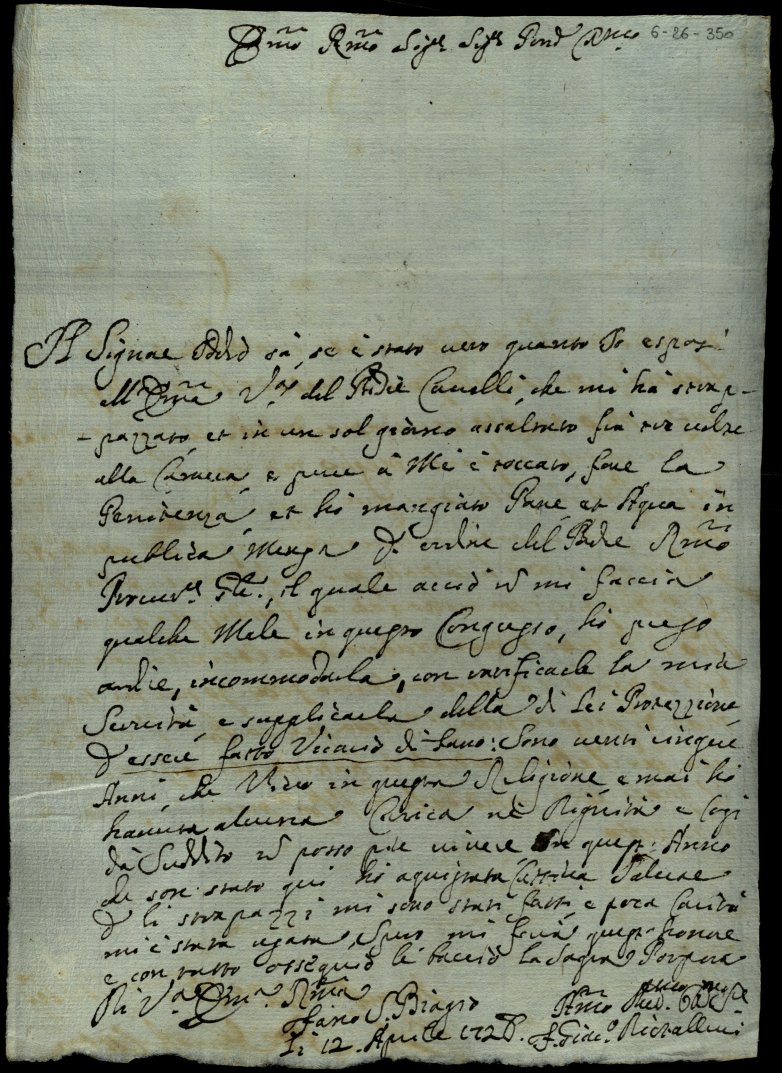 Emo Rmo Sigr Sigr Prod Colmo 6-26-350
Il Signore Iddio sà, se è stato vero quanto Io esposi
all' Emza Va del Padre Cavalli, che mi hà strap-
-pazzato, et in un sol giorno assaltato fin tre volte
alla Camera, e pure à Me è toccato, fare la
Penitenza, et hò mangiato Pane, et Aqua in
publica Mensa d' ordine del Padre Rmo
Procur. Gle., il quale acciò ñ mi faccia
qualche Male in questo Congresso, hò preso
ardire, incommodarla, con ratificarle la mia
Servitù, e supplicarla della di Lei Protezzione,
d' essere fatto Vicario di Fano: Sono venti cinque
Anni, che Vivo in questa Religione, e mai hò
havuta alcuna Carica nè Dignità e Cosi
dà Suddito ñ posso più vivere In quest' Anno
che son stato qui hò aquistata Cattiva Salute
d li strapazzi mi sono stati fatti, e poca Carità
mi è stata usata, Spero mi farà quest' honore
e con tutto ossequio le baccio la Sagra Porpora
Di Va Emza Rma
Fano S. Biagio
Li 12. Aprile 1728. F. Gide